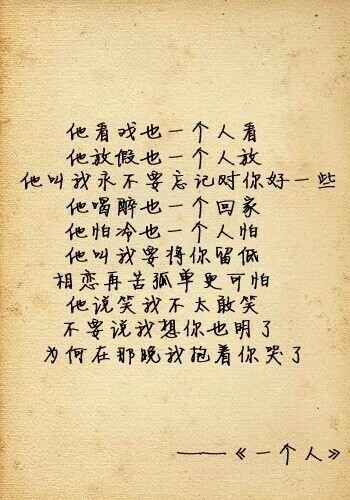 他看戏也一个人看
他放假也一个人放
他叫我永不要忘记对你好一些
他喝醉也一个回家
他怕冷也一个人怕
他叫我要将你留低
相恋再苦孤单更可怕
他说笑我不太敢笑
不要说我想你也明了
为何在那晚我抱着你哭了
——《一个人》